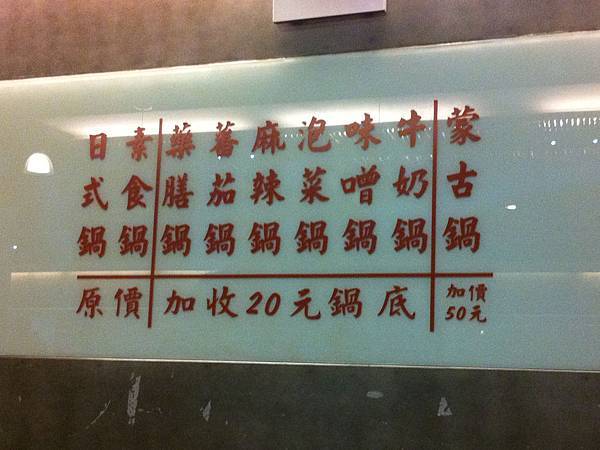 蒙古鍋
牛奶鍋
味噌鍋
泡菜鍋
麻辣鍋
蕃茄鍋
藥膳鍋
素食鍋
日式鍋
原價
加收20元鍋底
加價
50元